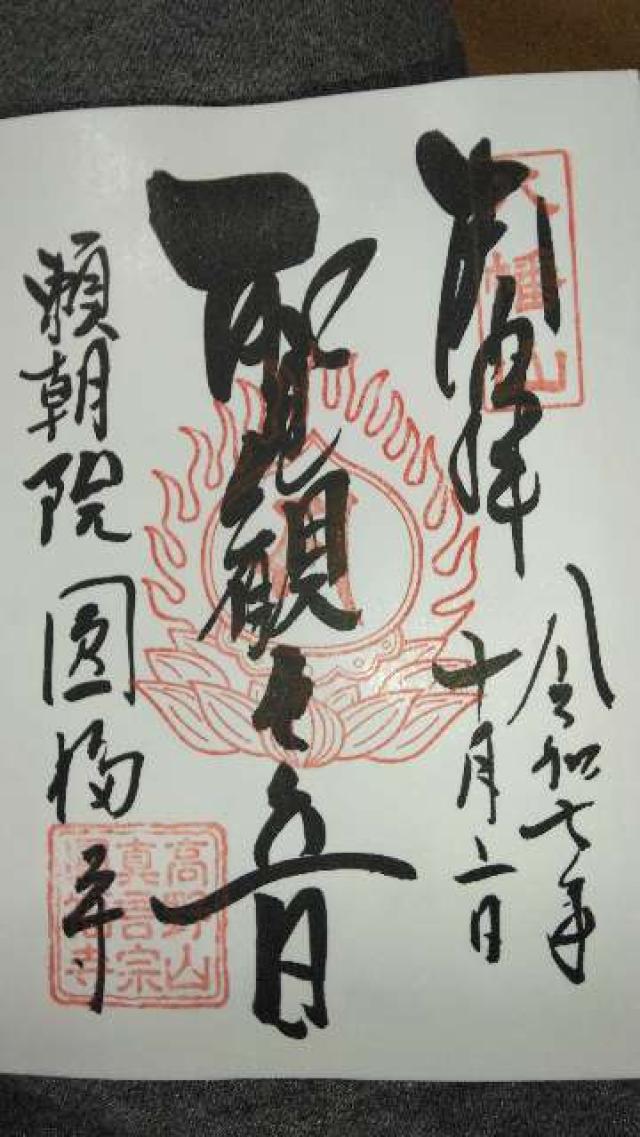 奉拝
令和七年
十月二日
聖観世音
頼朝院 圓福寺
高野山
真言宗
圓福寺